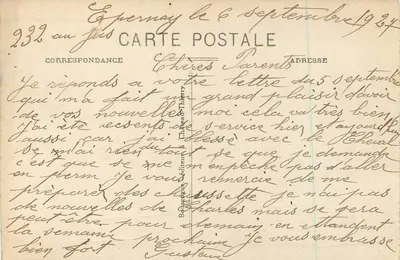 Epernay le 6 septembre 1937
232 au jus
CARTE POSTALE
CORRESPONDANCE
ADRESSE
Chères Parents
Je réponds a votre lettre du 5 septembre
qui m'a fait grand plaisir d'avoir
de vos nouvelles moi cela va très bien
J'ai été de service hier et aujourd'hui
aussi car j'ai blessé avec Cheval
se n'ai rien du tout se que je demande
c'est que se me m'empêche pas d'aller
en perm Je vous remercie de me
préparer des chaussette je n'ai pas
de nouvelles de Charles mais se sera
peut-être pour demain en attendant
la semaine prochaine Je vous embrasse
bien fort Gustave